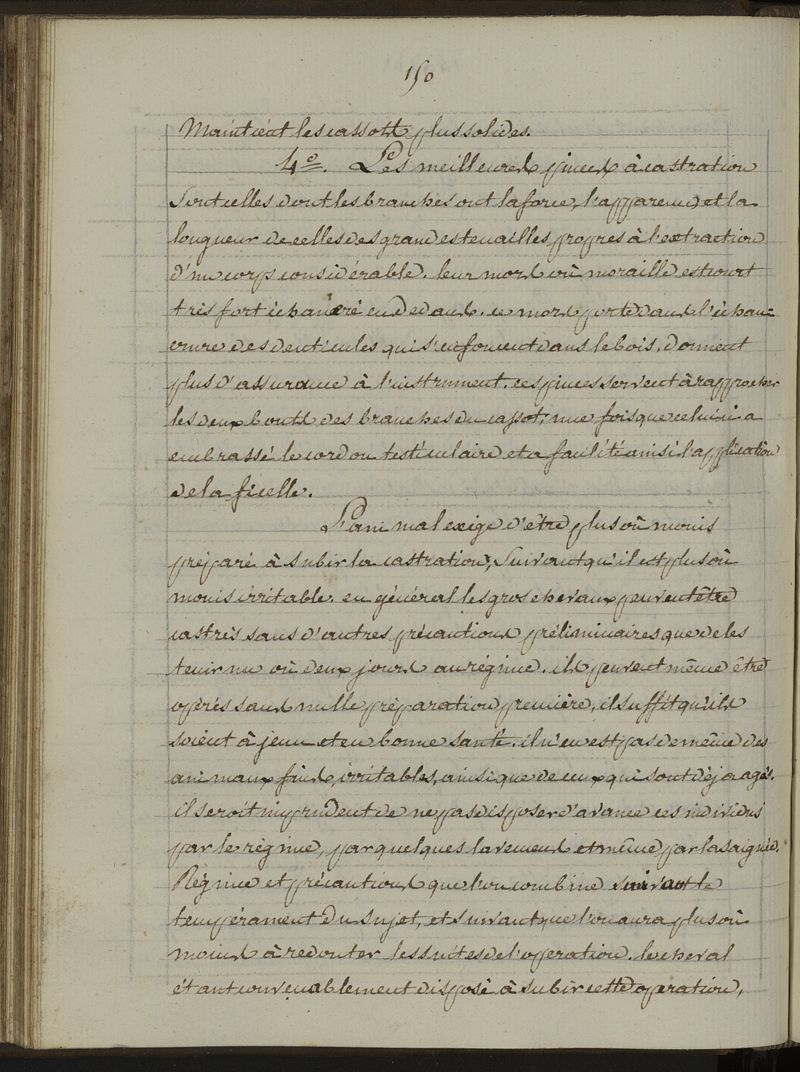 150
Maintient les cassots plus solides.
4º. Les meilleures pinces à castration
Sont celles dont les branches ont la force, l'apparence et la
longueur de celles des grandes tenailles propres à l'extraction
d'un corps considérable. leur mord où moraille est court
très fort échancré en dedans. ce mord porte dans l'échan=
crure des denticules qui s'enfoncent dans le bois, donnent
plus d'assurance à l'instrument. ces pinces servent à rapprocher
les deux bouts des branches du cassot, une fois que celui ci a
embrassé le cordon testiculaire et a facilité ainsi l'application
de la ficelle.
L'animal exige d'être plus où moins
préparé à subir la castration, Suivant qu'il est plus où
moins irritable. en général les gros chevaux peuvent être
castrés sans d'autres précautions préliminaires que de les
tenir un où deux jours au régime. ils peuvent même être
opérés sans nulle préparation première, il suffit qu'ils
soient à jeun et en bonne santé. il n'en est pas de même des
animaux fins, irritables, ainsi que de ceux qui sont déja agés.
il seroit imprudent de ne pas disposer d'avance ces individus
par le régime, par quelques lavemens et même par la saignée.
Régime et précautions que l'on combine suivant le
tempérament du sujet, et suivant que l'on aura plus où
moins à redouter les suites de l'operation. le cheval
étant convenablement disposé à subir cette operation,